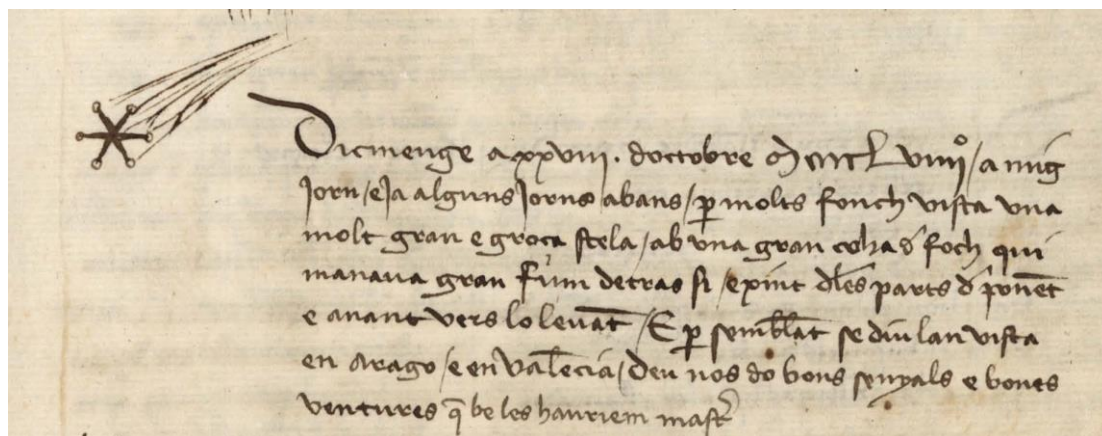 Dicmenge a xxviii. doctobre Mcccclviiiiº / a mig
Jorn / e Ja alguns Jorns abans / p molts fonch vista vna
molt gran e groça stela / ab vna gran coha d foch qui
manaua gran fum detras si / exint dles parts d ponẽt
e anant vers lo leuãt / E p semblãt se diu lan vista
en arago / e en valẽcia / deu nos do bons senyals e bones
ventures q̃ be les hauriem